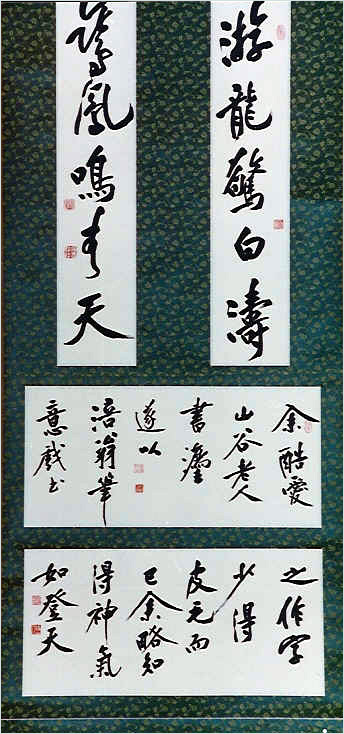 游龍驚白濤
鳳鳴青天
余酷愛
山谷老人
書灋
遂以
涪翁筆
意戲書
之作字
少得
皮元而
已余略知
得神氣
如登天